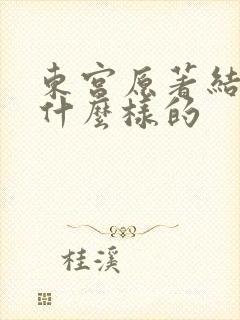 東宮原著結
什麼樣的
桂溪